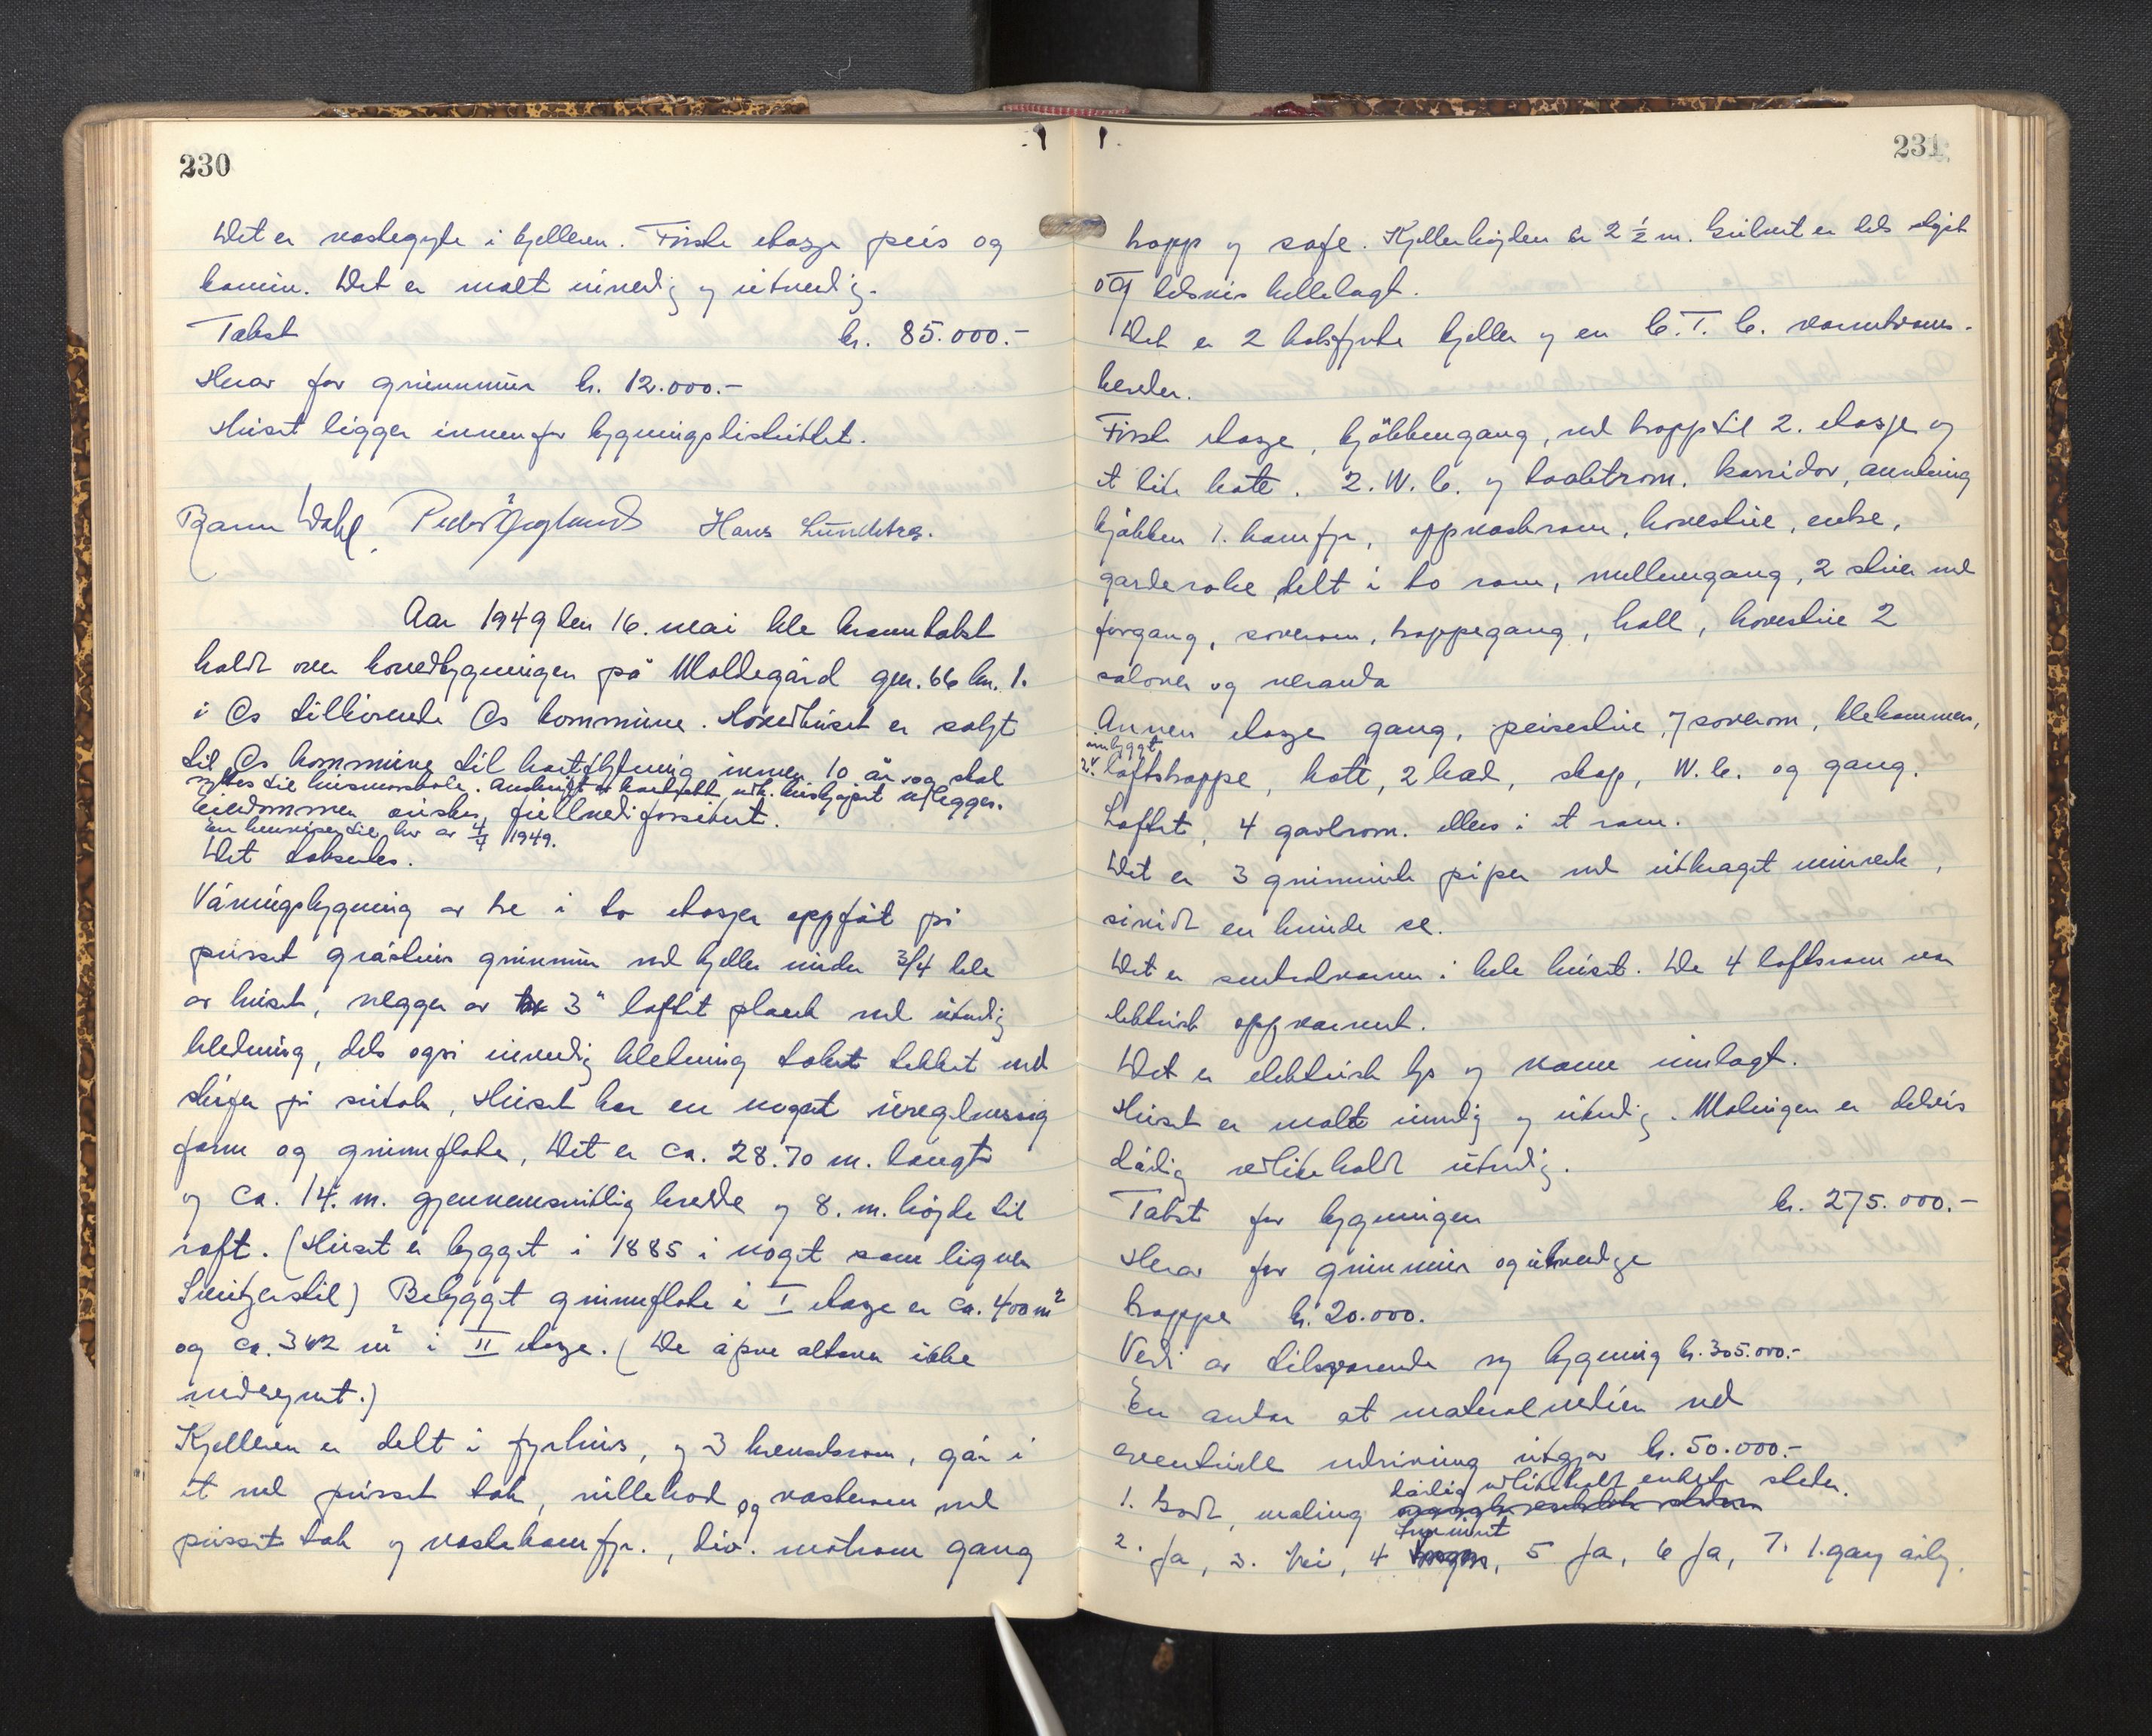 230
Det er vaskegryte i kjelleren. Første etasje peis og
kamin. Det er malt innvendig og utvendig.
Takst kr. 85.000.-
Herav for grunnmur kr. 12.000.-
Huset ligger innenfor bygningsdistriktet.
Bjarne Dahl. Peder Hans Lundetræ.
Aar 1949 den 16. mai ble branntakst
holdt over hovedbygningen på Moldegård gnr. 66 bnr. 1.
i Os tilhørende Os kommune. Hovedhuset er solgt
til Os kommune til bortflytning innen 10 år og skal
nyttes til husmorskole. Avskrift av kontrakt vedk. huskjøpet vedlegges.
Eiendommen ønskes fullverdiforsikret.
En henviser til brev av 4/4 1949.
Det takseres.
Våningsbygning av tre i to etasjer oppført på
pusset gråsteins grunnmur med kjeller under 3/4 dele
av huset, vegger av 3" laftet plank med utvendig
kledning, dels også innvendig kledning taket tekket med
skifer på sutak, Huset har en noget uregelmessig
form og grunnflate, Det er ca. 28.70 m. langt
og ca. 14. m. gjennemsnittlig bredde og 8. m. højde til
raft. (Huset er bygget i 1885 i noget som ligner
Sveitzerstil) Bebygget grunnflate i I etasje er ca. 400 m²
og ca. 342 m² i II etasje. (De åpne altaner ikke
medregnet.)
Kjelleren er delt i fyrhus, og 3 brenselsrom, går i
et med pusset tak, rullebod og vaskerom med
pusset tak og vaskekomfyr., div. matrom gang
231
trapp og safe. Kjellerhøjden er 2 ½ m. Gulvet er dels støpt
og delsvis hellelagt.
Det er 2 koksfyrte kjeller og en C.T.C. varmtvanns-
bereder.
Første etasje, kjøkkengang, med trapp til 2. etasje og
et lite kott. 2. W.C. og toalettrom. korridor, anretning
kjøkken 1. komfyr, oppvaskrom, havestue, entre,
garderobe delt i to rom, mellemgang, 2 stuer med
forgang, soverom, trappegang, hall, havestue 2
saloner og veranda
Annen etasje gang, peisestue, 7 soverom, klekammer,
innbygget
2. loftstrappe, kott, 2 bad, skap, W.C. og gang.
Loftet, 4 gavlrom. ellers i et rom.
Det er 3 grunnmurte piper med utkraget murverk,
såvidt en kunde se.
Det er sentralvarme i hele huset. De 4 loftsrom var
elektrisk oppvarmet.
Det er elektrisk lys og vann innlagt.
Huset er malt innvendig og utvendig. Malingen er delvis
dårlig vedlikeholdt utvendig.
Takst for bygningen kr. 275.000.-
Herav for grunnmur og utvendige
trappe kr. 20.000.
Verdi av tilsvarende ny bygning kr. 305.000.-
En antar at materialverdien ved
eventuelle nedrivning utgjør kr. 50.000.-
dårlig vedlikeholdt enkelte steder.
1. Godt, maling
2. Ja, 3. Nei, 4 5 Ja, 6 Ja, 7. 1. gang årlig.